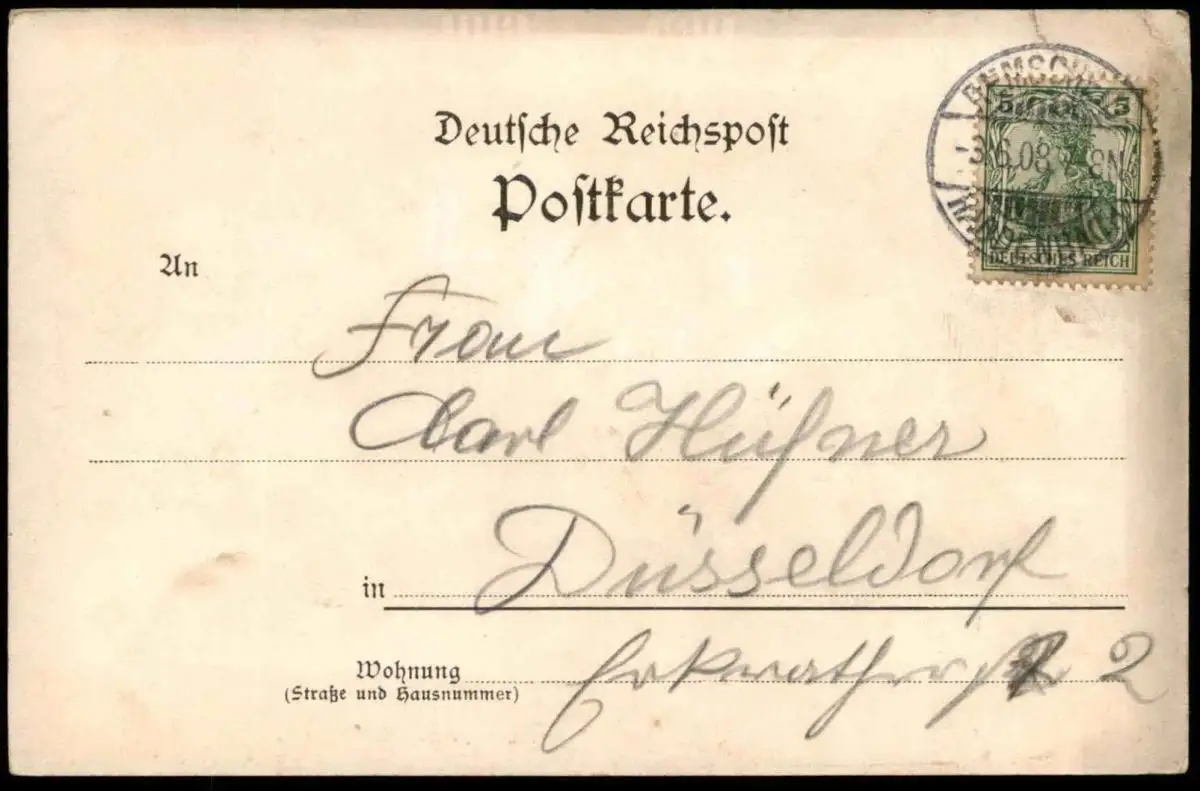 Deutsche Reichspost
Postkarte.
5 5
3.6.08 8N
DEUTSCHES REICH
An
Frau
Carl Hüfner
in Düsseldorf
Wohnung Erkrather 2
(Straße und Hausnummer)